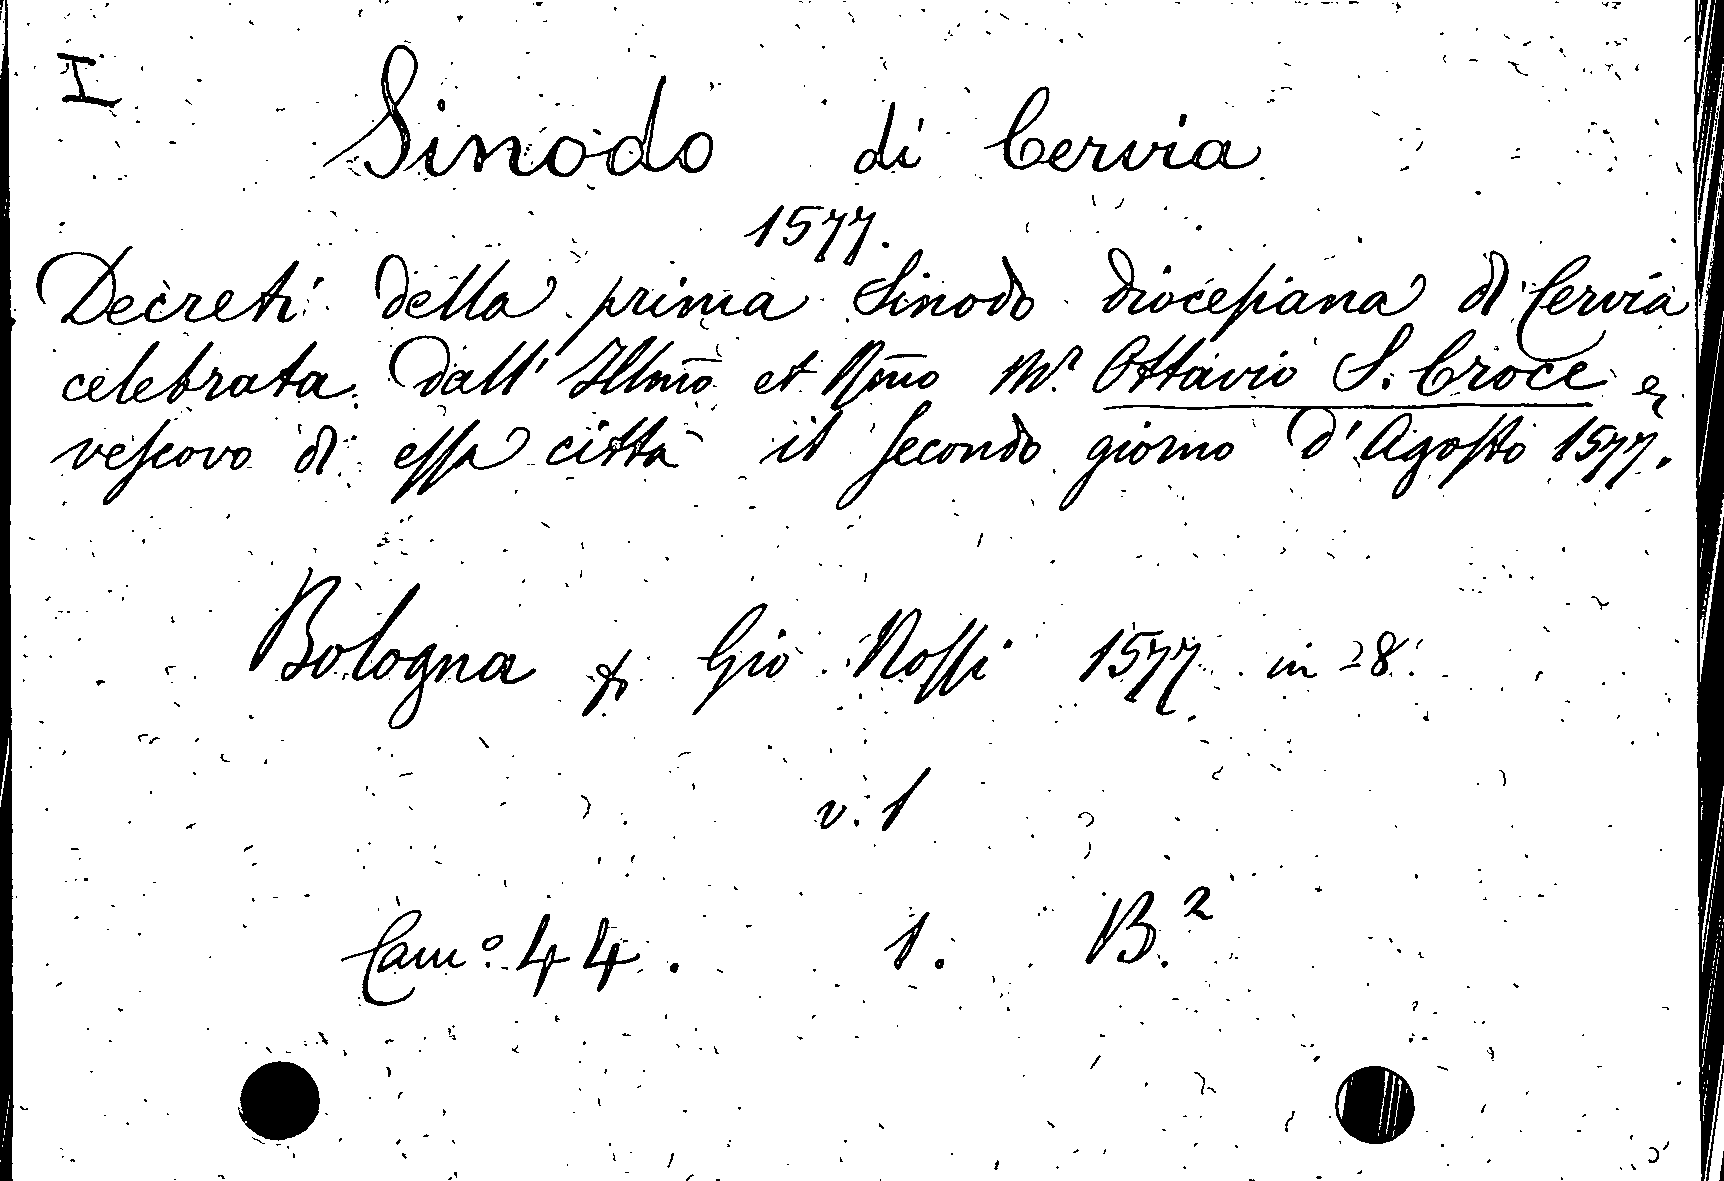 I
Sinodo di Cervia
1577.
Decreti della prima Sinodo diocesiana di Cervia
celebrata dall' Illmo et Rmo Mr Ottavio S. Croce
vescovo di essa città il secondo giorno d'Agosto 1577.
Bologna Gio Rossi 1577 in 28
v. 1
Cam° 44. 1. B.²